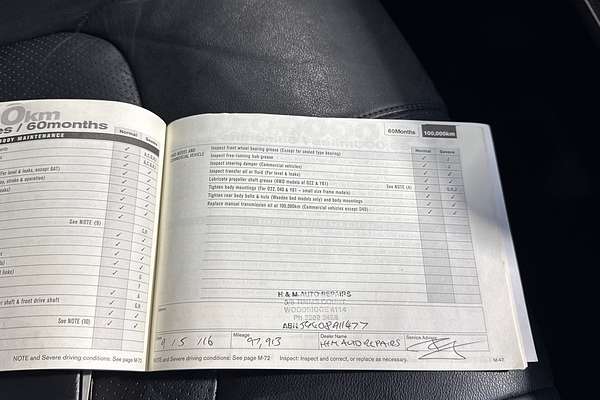 0km
es / 60months
Normal Severe
BODY MAINTENANCE
See NOTE (9)
er shaft & front drive shaft
See NOTE (10)
NOTE and Severe driving conditions: See page M-72
60Months 100,000km
Normal Severe
Inspect front wheel bearing grease (Except for sealed type bearing)
Inspect free-running hub grease
Inspect steering damper (Commercial vehicles)
Inspect transfer oil or fluid (For level & leaks)
Lubricate propeller shaft grease (4WD models of D22 & Y61) See NOTE (4)
Tighten body mountings (For D22, D40 & Y61 - small size frame models)
Tighten rear body bolts & nuts (Wooden bed models only) and body mountings
Replace manual transmission oil at 100,000km (Commercial vehicles except D40)
H & M AUTO REPAIRS
WOODRIDGE 4114
Mileage Dealer Name Service Advisor
1 5 /16 97,913 H&M AUTO REPAIRS
NOTE and Severe driving conditions: See page M-72 Inspect: Inspect and correct, or replace as necessary.
M-47